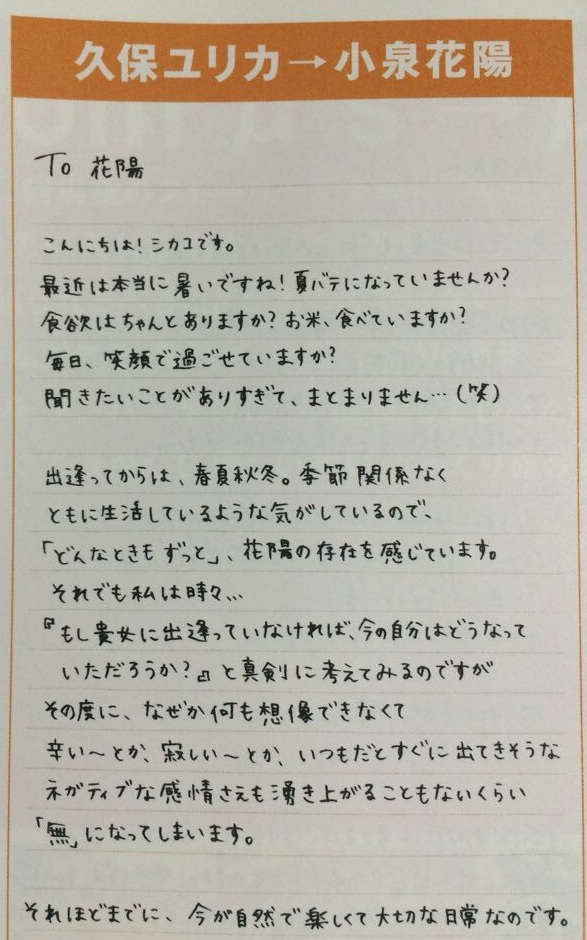 久保ユリカ→小泉花陽
To 花陽
こんにちは！シカコです。
最近は本当に暑いですね！夏バテになっていませんか？
食欲はちゃんとありますか？お米、食べていますか？
毎日、笑顔で過ごせていますか？
聞きたいことがありすぎて、まとまりません…(笑)
出逢ってからは、春夏秋冬。季節関係なく
ともに生活しているような気がしているので、
「どんなときもずっと」、花陽の存在を感じています。
それでも私は時々…
『もし貴女に出逢っていなければ、今の自分はどうなって
いただろうか？』と真剣に考えてみるのですが
その度に、なぜか何も想像できなくて
辛い〜とか、寂しい〜とか、いつもだとすぐに出てきそうな
ネガティブな感情さえも湧き上がることもないくらい
「無」になってしまいます。
それほどまでに、今が自然で楽しくて大切な日常なのです。